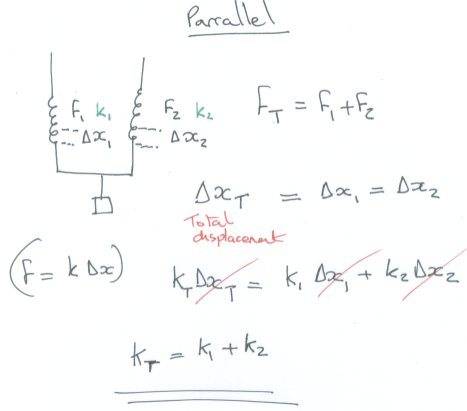 Parrallel
F₁ k₁ F₂ k₂
Δx₁ Δx₂
F_T = F₁ + F₂
Δx_T = Δx₁ = Δx₂
Total
displacement
(F = k Δx)
k_T Δx_T = k₁ Δx₁ + k₂ Δx₂
k_T = k₁ + k₂